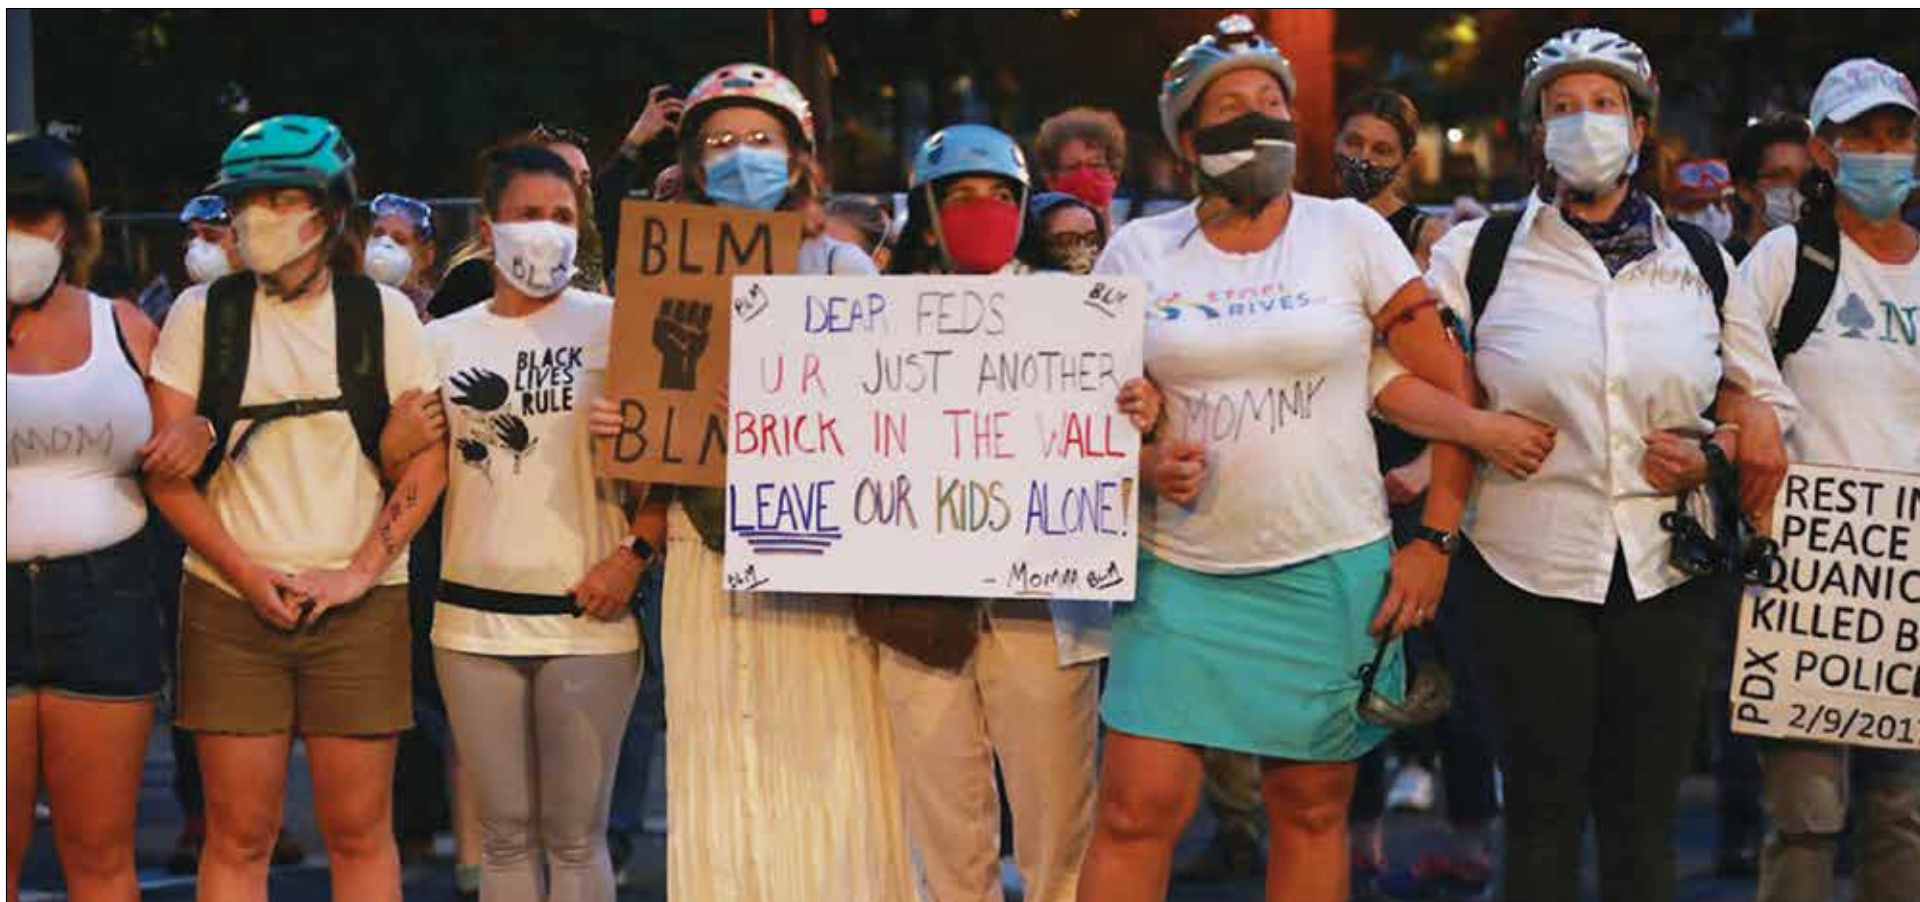 MOM
BLM
BLACK
LIVES
RULE
BLM
BLM
BLM
DEAR FEDS
U R JUST ANOTHER
BRICK IN THE WALL
LEAVE OUR KIDS ALONE!
BLM
- MOMMA BLM
RIVES
MOMMY
MOM
N
REST IN
PEACE
QUANIC
KILLED B
POLICE
2/9/201
PDX